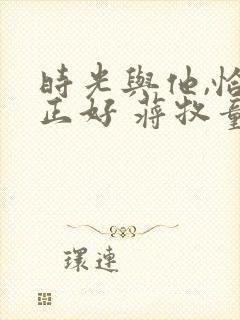 時光與他,恰
正好 蔣牧童
環連